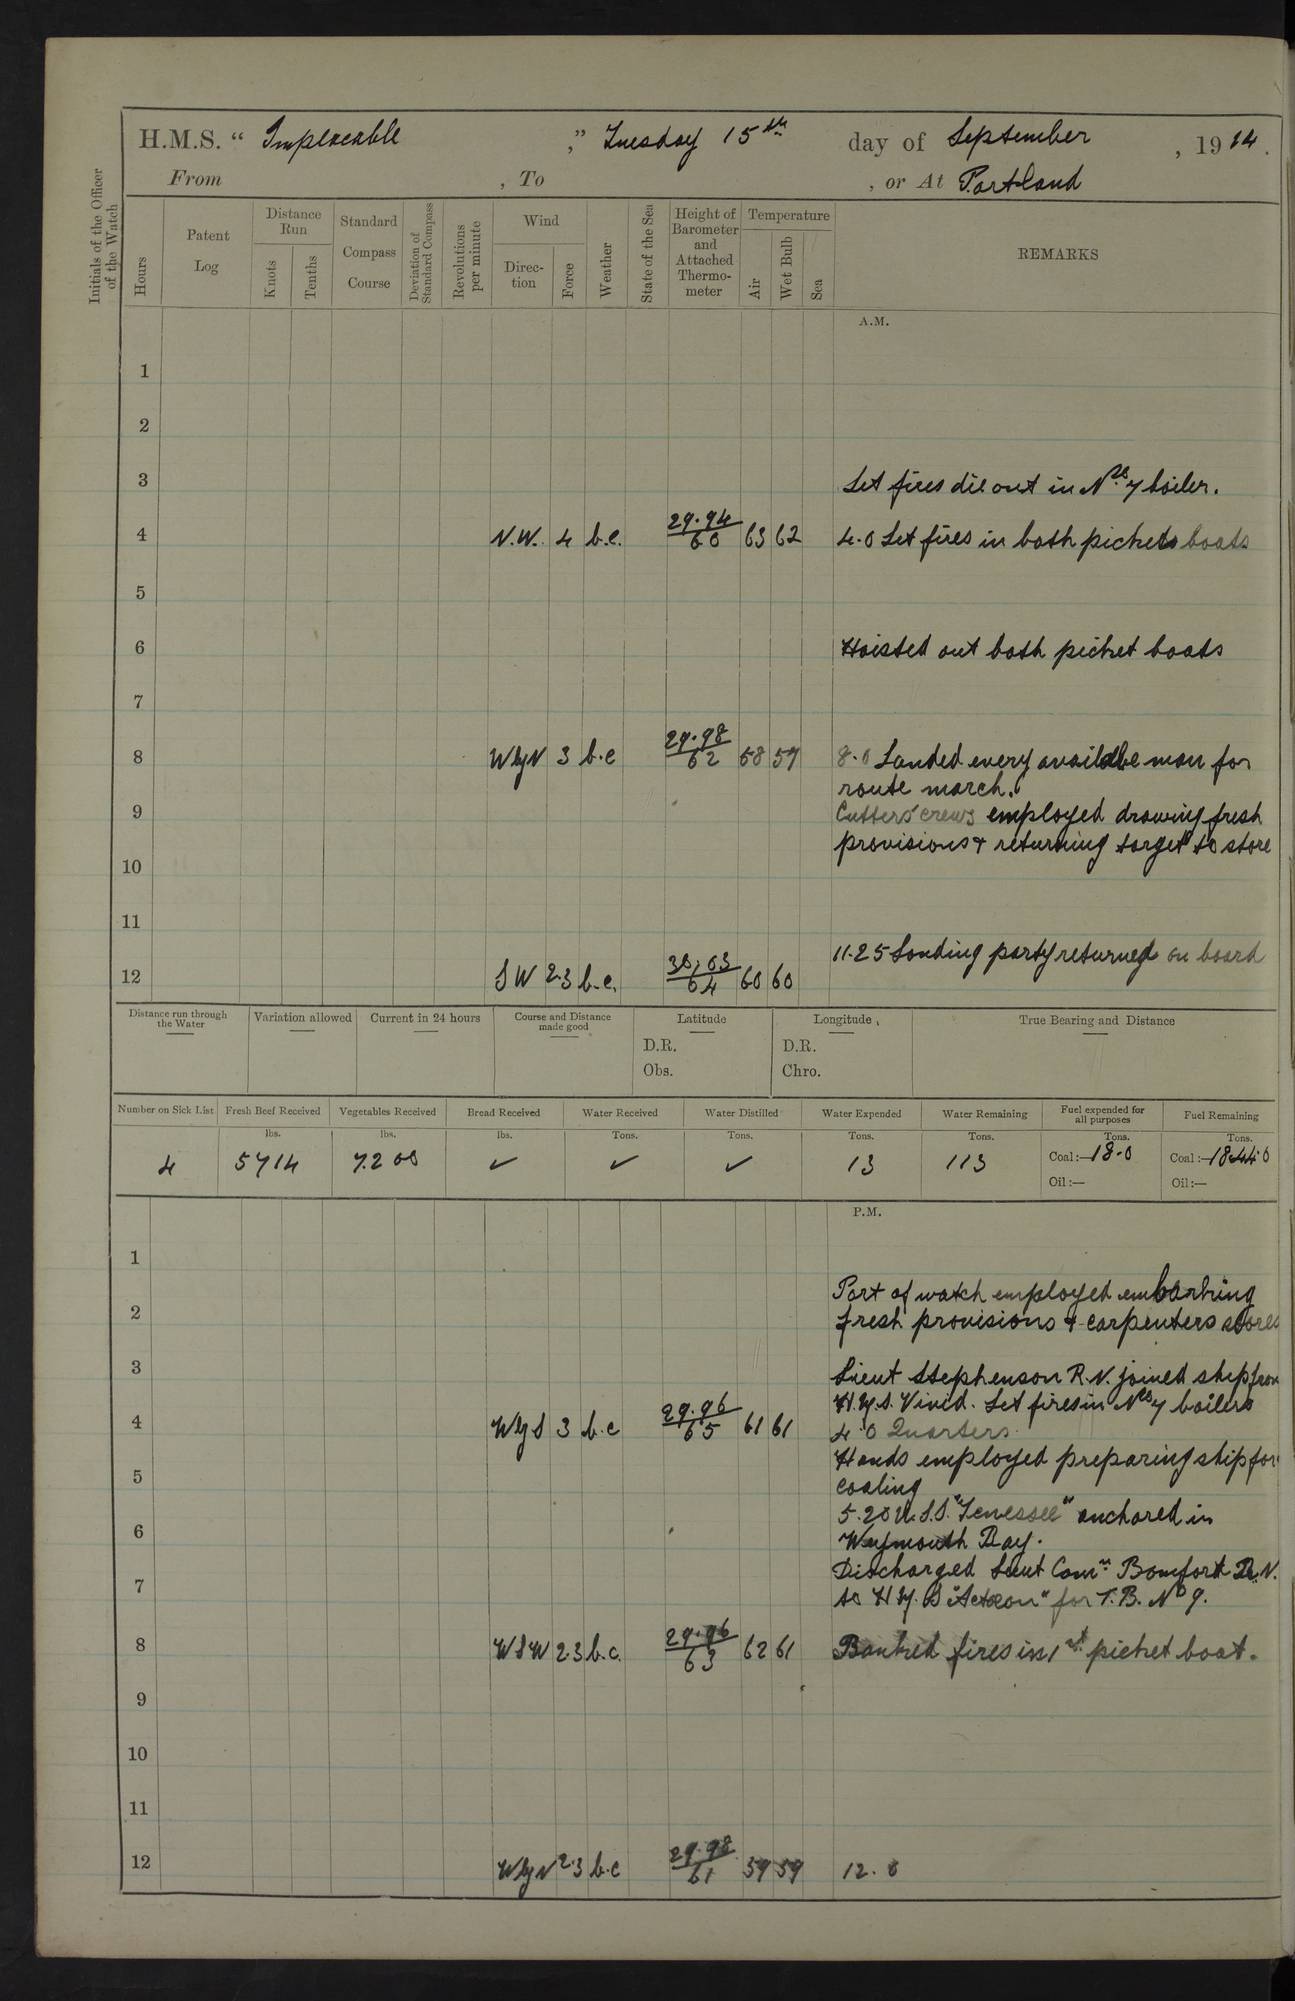 H.M.S. “ Implacable ,” Tuesday 15th day of September , 1914.
From , To , or At Portland
Initials of the Officer of the Watch
Hours
Patent Log
Distance Run
Knots
Tenths
Standard Compass Course
Deviation of Standard Compass
Revolutions per minute
Wind
Direc-tion
Force
Weather
State of the Sea
Height of Barometer and Attached Thermo-meter
Temperature
Air
Wet Bulb
Sea
REMARKS
A.M.
1
2
3 Let fires die out in Nos 7 boiler.
4 N.W. 4 b.c. 29.94/60 63 62 4.0 Let fires in both picket boats
5
6 Hoisted out both picket boats
7
8 WbyN 3 b.c 29.98/62 58 57 8.0 Landed every availabe man for
route march.
9 Cutters' crews employed drawing fresh
provisions & returning target to store
10
11
11.25 Landing party returned on board
12 SW 2.3 b.c. 30.03/64 60 60
Distance run through the Water
Variation allowed
Current in 24 hours
Course and Distance made good
Latitude
D.R.
Obs.
Longitude
D.R.
Chro.
True Bearing and Distance
Number on Sick List
Fresh Beef Received
Vegetables Received
Bread Received
Water Received
Water Distilled
Water Expended
Water Remaining
Fuel expended for all purposes
Fuel Remaining
lbs. lbs. lbs. Tons. Tons. Tons. Tons. Tons. Tons.
4 5714 7200 ✓ ✓ ✓ 13 113 Coal:—18.0 Coal:—
Oil:— Oil:—
P.M.
1
Part of watch employed embarking
2 fresh provisions & carpenters stores
3 Lieut Stephenson R.N. joined ship from
H.M.S. Vivid. Let fires in Nos 7 boilers
4 WbyS 3 b.c 29.96/65 61 61 4.0 Quarters.
Hands employed preparing ship for
5 coaling
5.20 U.S.S. "Tenessee" anchored in
6 Weymouth Bay.
Discharged Lieut Comr Bomford R.N.
7 to H.M.S "Actæon" for T.B. No 9.
8 WSW 2.3 b.c. 29.96/63 62 61 Banked fires in 1st picket boat.
9
10
11
12 WbyN 2.3 b.c 29.98/61 59 59 12.0